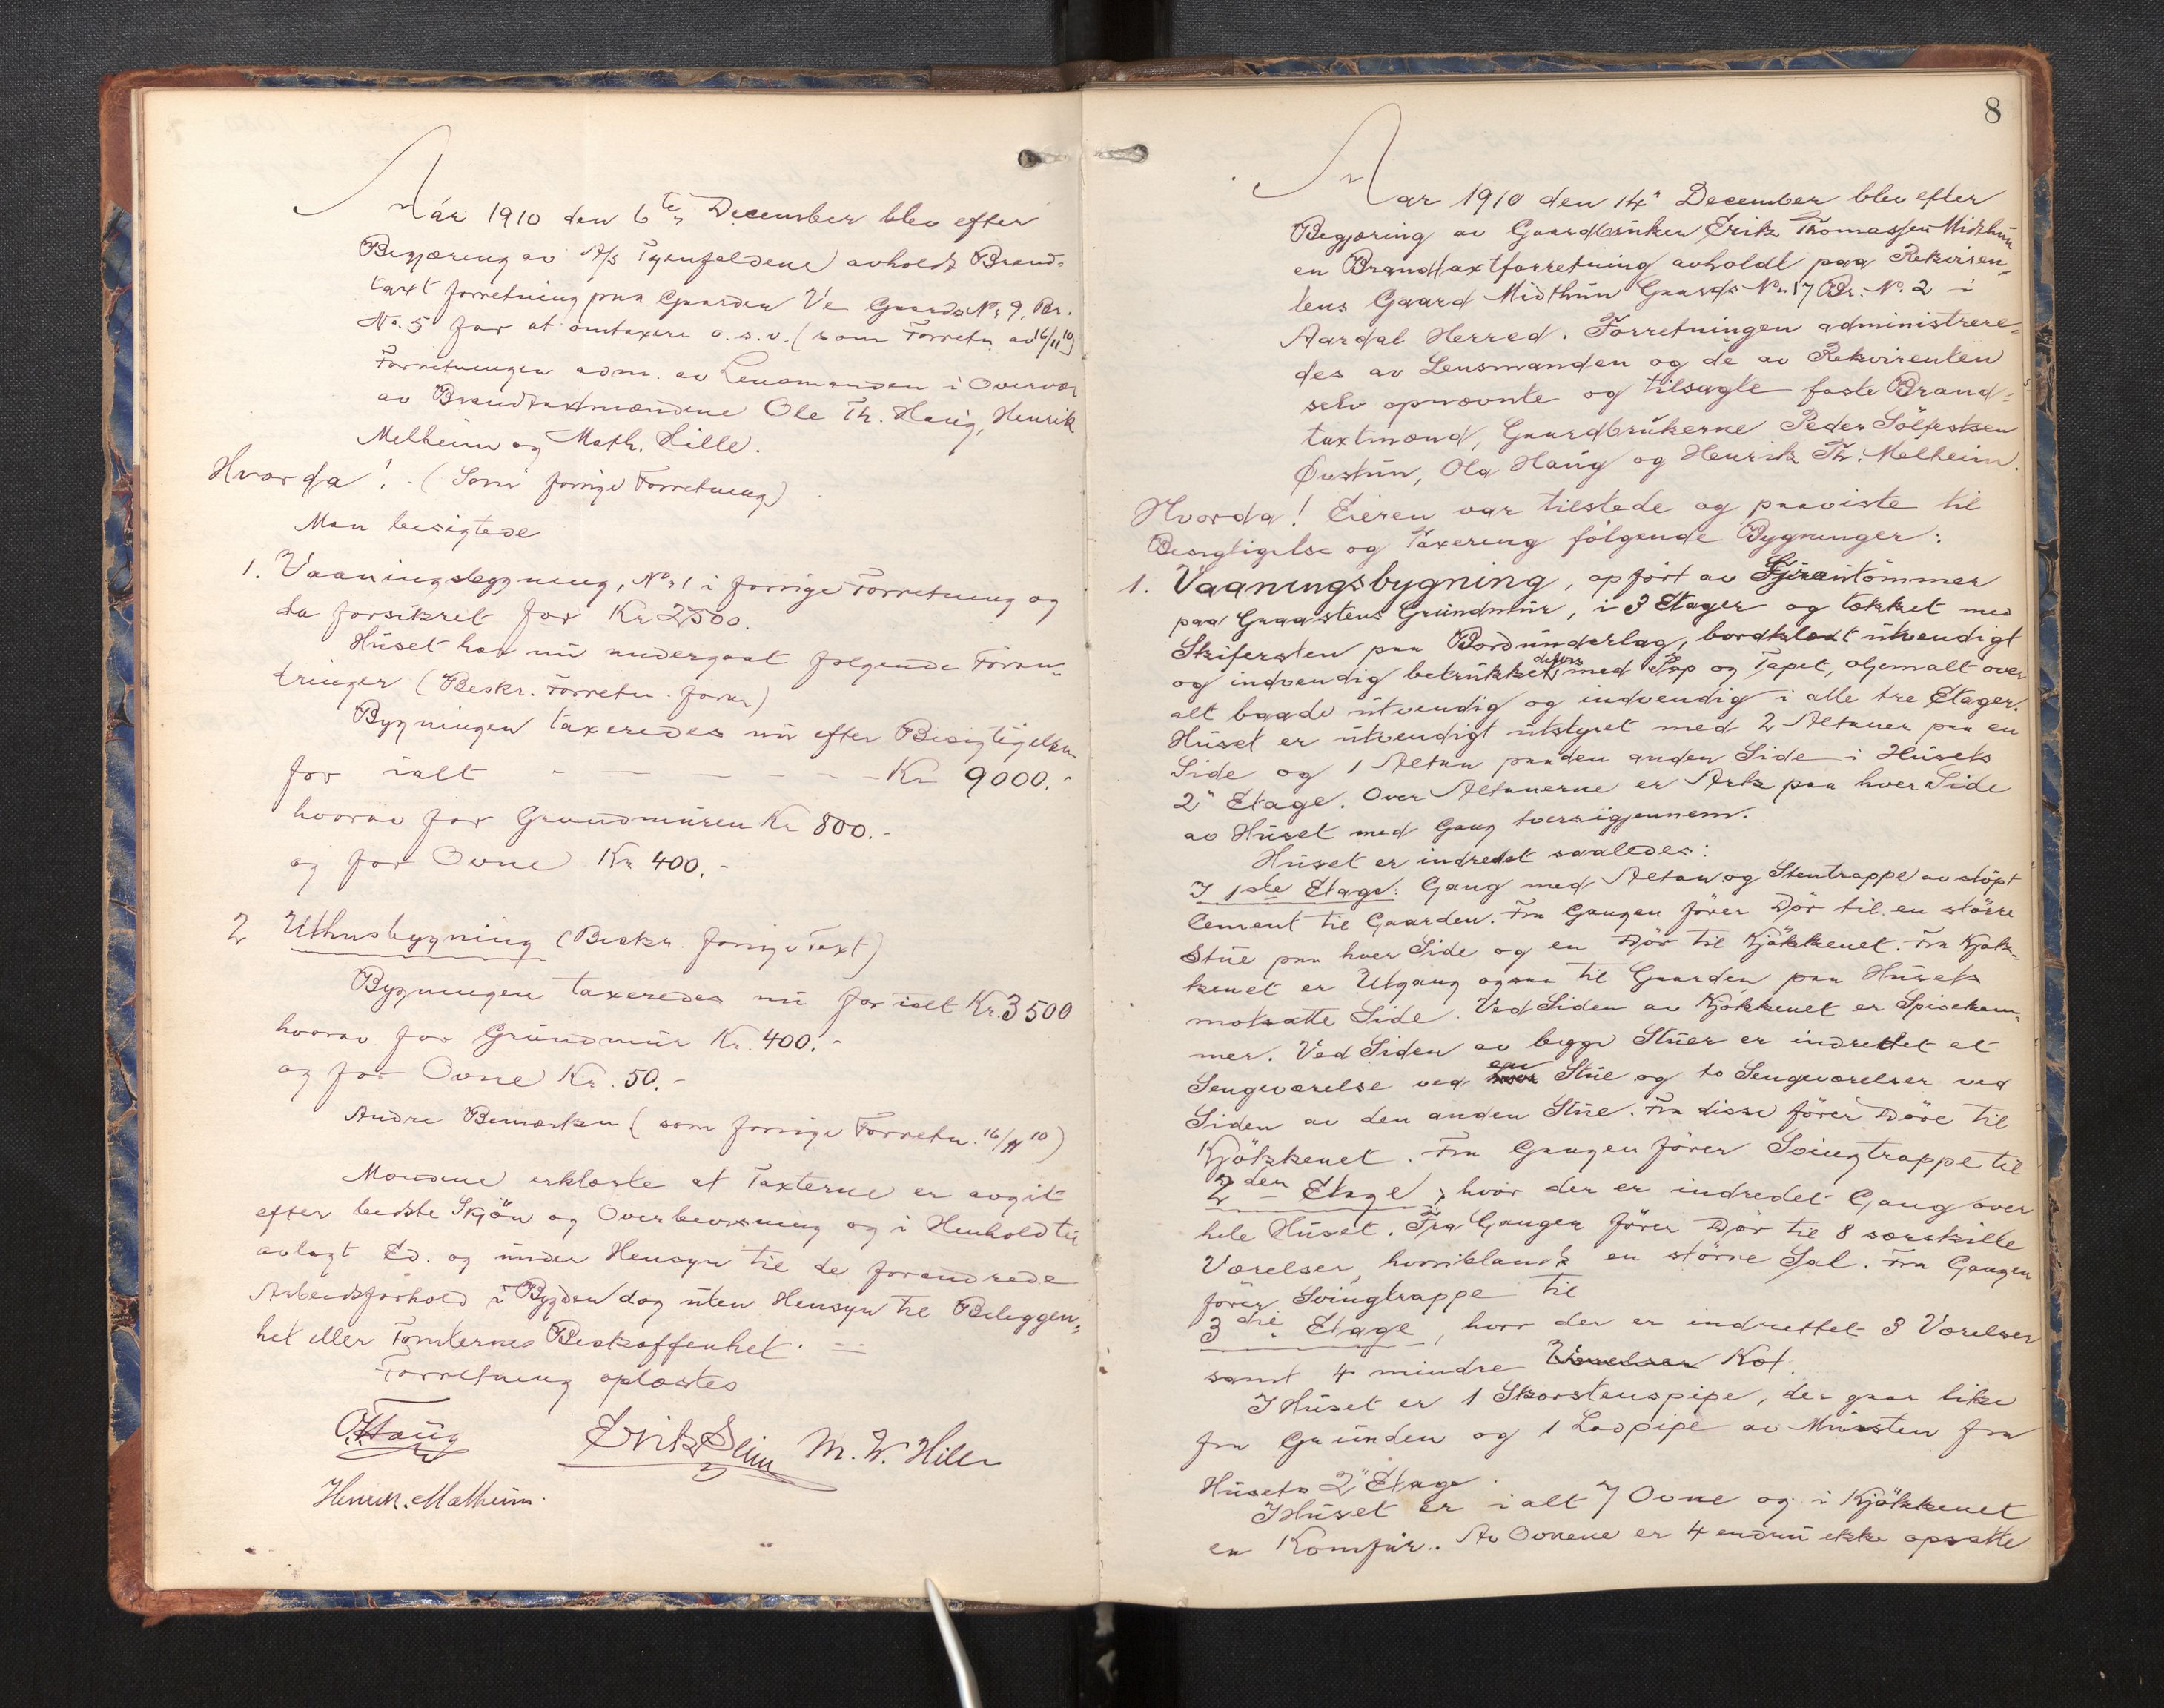 Aar 1910 den 6te December blev efter
Begjæring av A/s Tyenfaldene avholdt Brand-
taxt forretning paa Gaarden Ve Gaards No 9, Br.
No. 5 for at omtaxere o.s.v. (som Forretn. av 16/11 10)
Forretningen adm. av Lensmanden i Overvær
av Brandtaxtmændene Ole Th. Haug, Henrik
Melheim og Math. Hille.
Hvorda! (Som forrige Forretning)
Man besigtede
1. Vaaningsbygning, No 1 i forrige Forretning og
da forsikret for Kr 2500.
Huset har nu undergaat følgende Foran-
dringer (Beskr. Forretn. foru)
Bygningen taxeredes nu efter Besigtigelsen
for ialt - - - - - Kr 9000.-
hvorav for Grundmuren Kr 800.-
og for Ovne Kr 400.-
2 Uthusbygning (Beskr. forrige Taxt)
Bygningen taxeredes nu for ialt Kr. 3500
hvorav for Grundmur Kr. 400.-
og for Ovne Kr. 50.-
Andre Bemærkn (som forrige Forretn. 16/11 10)
Mændene erklærte at Taxterne er avgit
efter bedste Skjön og Overbevisning og i Henhold til
avlagt Ed. og under Hensyn til de forandrede
Arbeidsforhold i Bygden dog uten Hensyn til Beliggen-
het eller Tomternes Beskaffenhet.
Forretning oplæstes
O. Haug Erik Slim M. W. Hille
Henrik. Melheim.
8
Aar 1910 den 14" December blev efter
Begjæring av Gaardbruker Erik Thomassen Midthun
en Brandtaxtforretning avholdt paa Rekviren-
tens Gaard Midthun Gaards No 17 Br. N. 2 i
Aardal Herred. Forretningen administrere-
des av Lensmanden og de av Rekvirenten
selv opnævnte og tilsagte faste Brand-
taxtmænd, Gaardbrukerne Peder Sölfestsen
Øvstun, Ola Haug og Henrik Th. Melheim.
Hvorda! Eieren var tilstede og paaviste til
Besigtigelse og Taxering fölgende Bygninger:
1. Vaaningsbygning, opfört av Furutömmer
paa Graastens Grundmur, i 3 Etager og tækket med
Skifersten paa Bordunderlag, bordklædt utvendigt
og indvendig betrukket delvis med Pap og Tapet, oljemalt over
alt baade utvendig og indvendig i alle tre Etager.
Huset er utvendigt utstyret med 2 Altaner paa en
Side og 1 Altan paa den anden Side i Husets
2" Etage. Over Altanerne er Ark paa hver Side
av Huset med Gang tversigjennem.
Huset er indredet saaledes:
I 1ste Etage: Gang med Altan og Stentrappe av stöpt
Cement til Gaarden. Fra Gangen förer Dör til en större
Stue paa hver Side og en Dör til Kjökkenet. Fra Kjök-
kenet er Utgang ogsaa til Gaarden paa Husets
motsatte Side. Ved Siden av Kjökkenet er Spisekam-
mer. Ved Siden av begge Stuer er indredet et
Sengeværelse ved hver en Stue og to Sengeværelser ved
Siden av den anden Stue. Fra disse förer Döre til
Kjökkenet. Fra Gangen förer Svingtrappe til
2den Etage, hvor der er indredet Gang over
hele Huset. Fra Gangen förer Dör til 8 særskilte
Værelser, hvoriblandt en större Sal. Fra Gangen
förer Svingtrappe til
3die Etage, hvor der er indrettet 3 Værelser
samt 4 mindre Værelser Kot.
I Huset er 1 Skorstenspipe, der gaar like
fra Grunden og 1 Ladpipe av Mursten fra
Husets 2" Etage.
I Huset er i alt 7 Ovne og i Kjökkenet
en Komfur. Av Ovnene er 4 endnu ikke opsatte